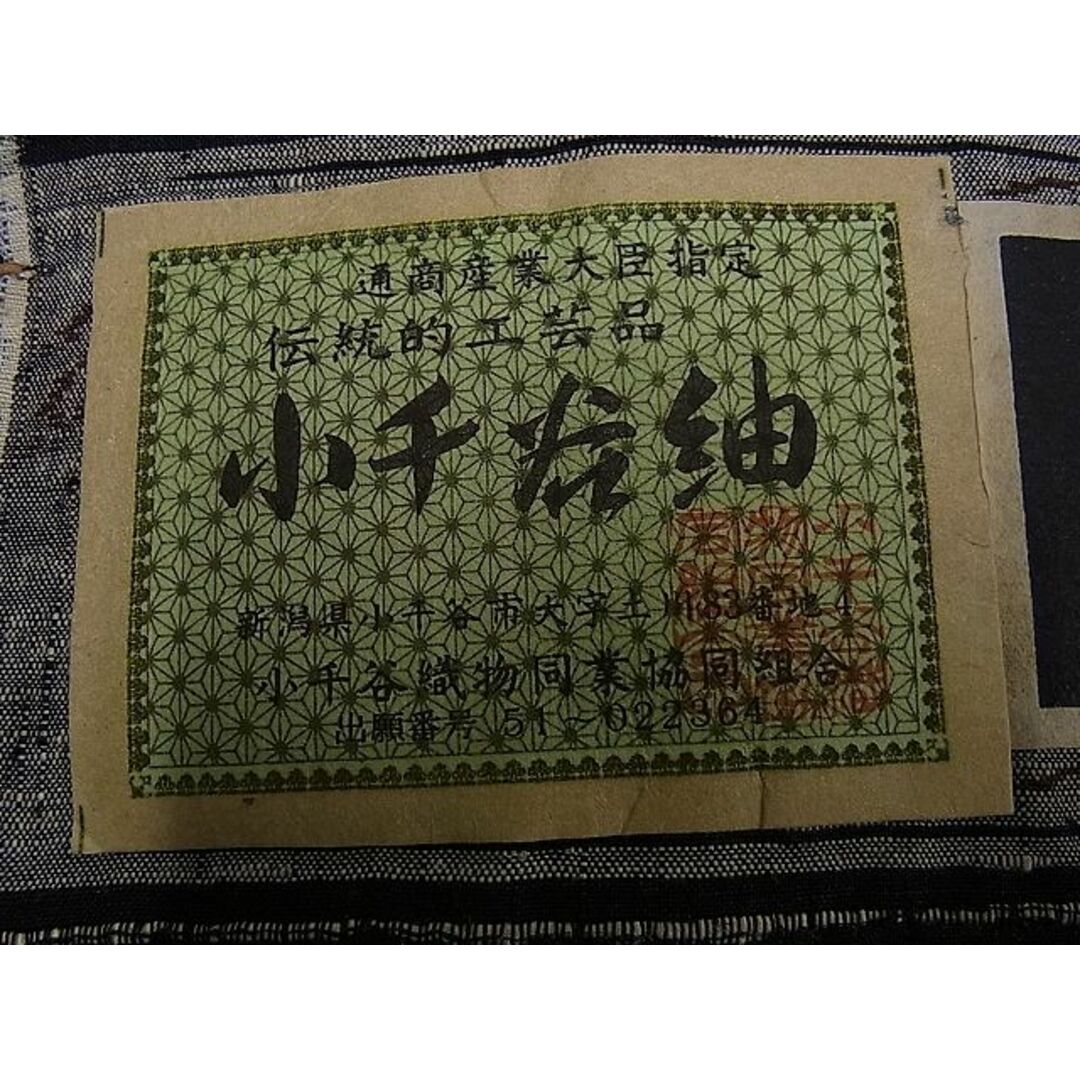 通商産業大臣指定
伝統的工芸品
小千谷紬
新潟県小千谷市大字土川183番地4
小千谷織物同業協同組合
出願番号 51-022364